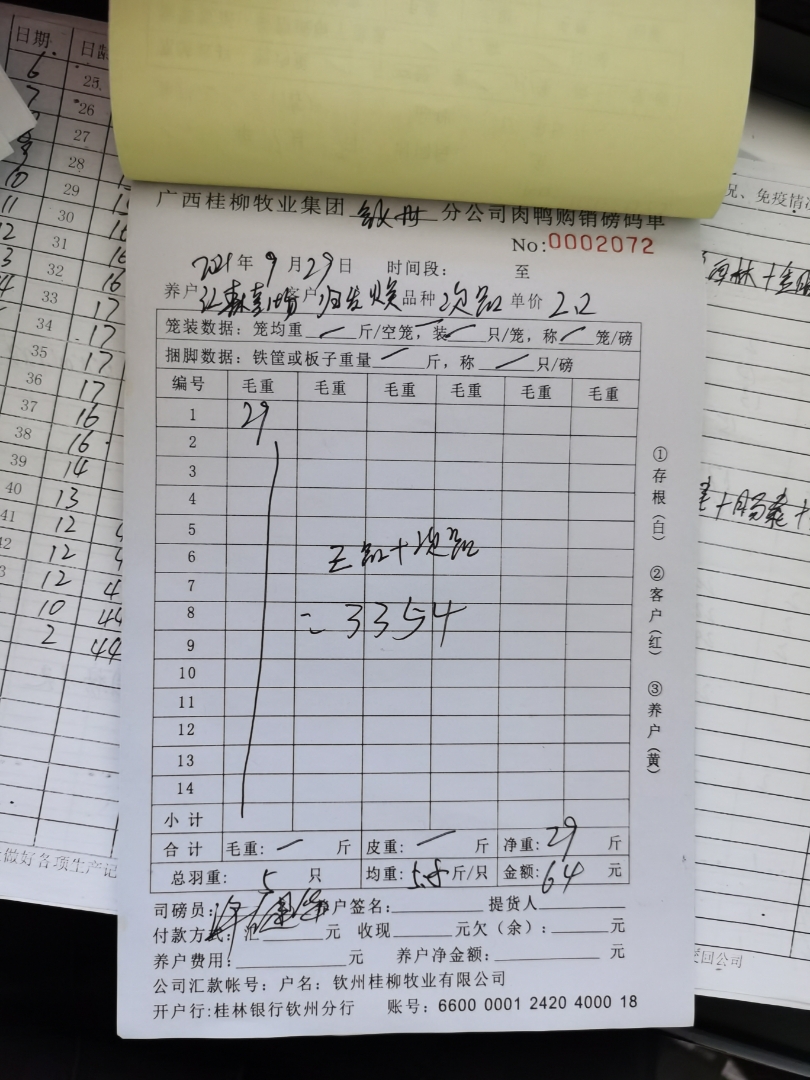 广西桂柳牧业集团 钦州 分公司肉鸭购销磅码单
No:0002072
2021年9月29日 时间段: 至
养户: 客户: 品种 次品 单价 2.2
笼装数据: 笼均重 一 斤/空笼, 装 一 只/笼, 称 一 笼/磅
捆脚数据: 铁筐或板子重量 一 斤, 称 一 只/磅
编号 毛重 毛重 毛重 毛重 毛重 毛重
1 29
2
3
4
5
6 正品+次品
7
8 = 3354
9
10
11
12
13
14
小计
合计 毛重: 一 斤 皮重: 一 斤 净重: 29 斤
总羽重: 5 只 均重: 5.8 斤/只 金额: 64 元
司磅员: 养户签名: 提货人
付款方式: 汇 元 收现 元欠(余): 元
养户费用: 元 养户净金额: 元
公司汇款帐号: 户名: 钦州桂柳牧业有限公司
开户行:桂林银行钦州分行 账号: 6600 0001 2420 4000 18
①存根(白) ②客户(红) ③养户(黄)
日期 日龄
6 25
7 26
27
28
10 29
11 30
12 31 16
13 32 16
14 33 17
34 17
35 17
36 17
37 16
38 16
39 14
40 13
41 12
42 12
12
10 44
2 44
况、免疫情况
做好各项生产记
回公司